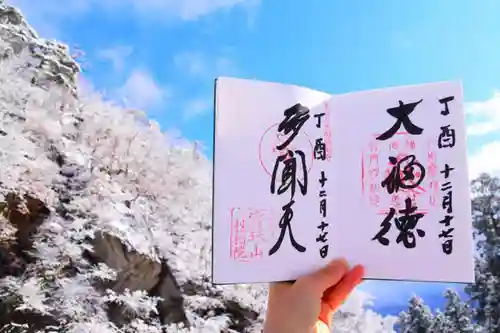 丁酉 十二月十七日
大福徳
丁酉 十二月十七日
多聞天